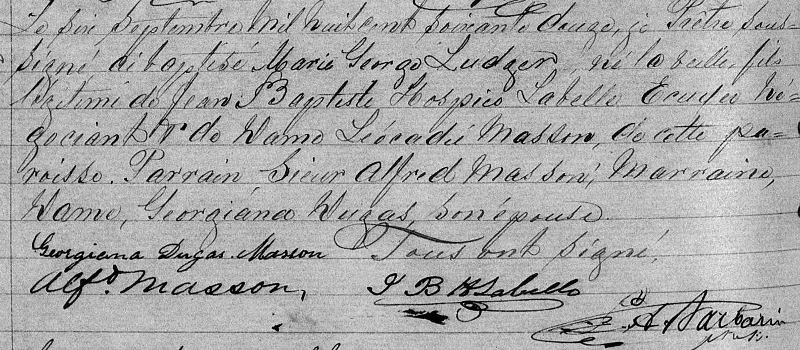 Le six Septembre mil huit cent soixante douze, je Prêtre sous=
signé ai baptisé Marie George Ludger, né la veille, fils
légitime de Jean Baptiste Hospice Labelle Ecuyer Né=
gociant & de Dame Léocadie Masson, de cette pa=
roisse. Parrain Sieur Alfred Masson, Marraine,
Dame, Georgiána Dugas, son épouse.
Georgiana Dugas. Masson Tous ont signé,
Alfd. Masson, J B H Labelle
A. Barbarin